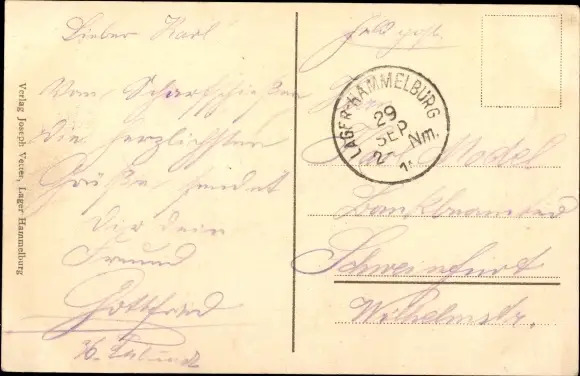 Lieber Karl
Vom Scharfschießen
die herzlichsten
Grüße sendet
Dir dein
Freund
Gottfried
Verlag Joseph Vetter, Lager Hammelburg
Feldpost.
LAGER-HAMMELBURG
29
SEP
2- Nm.
Model
Bankbeamter
Schweinfurt
Wilhelmstr.